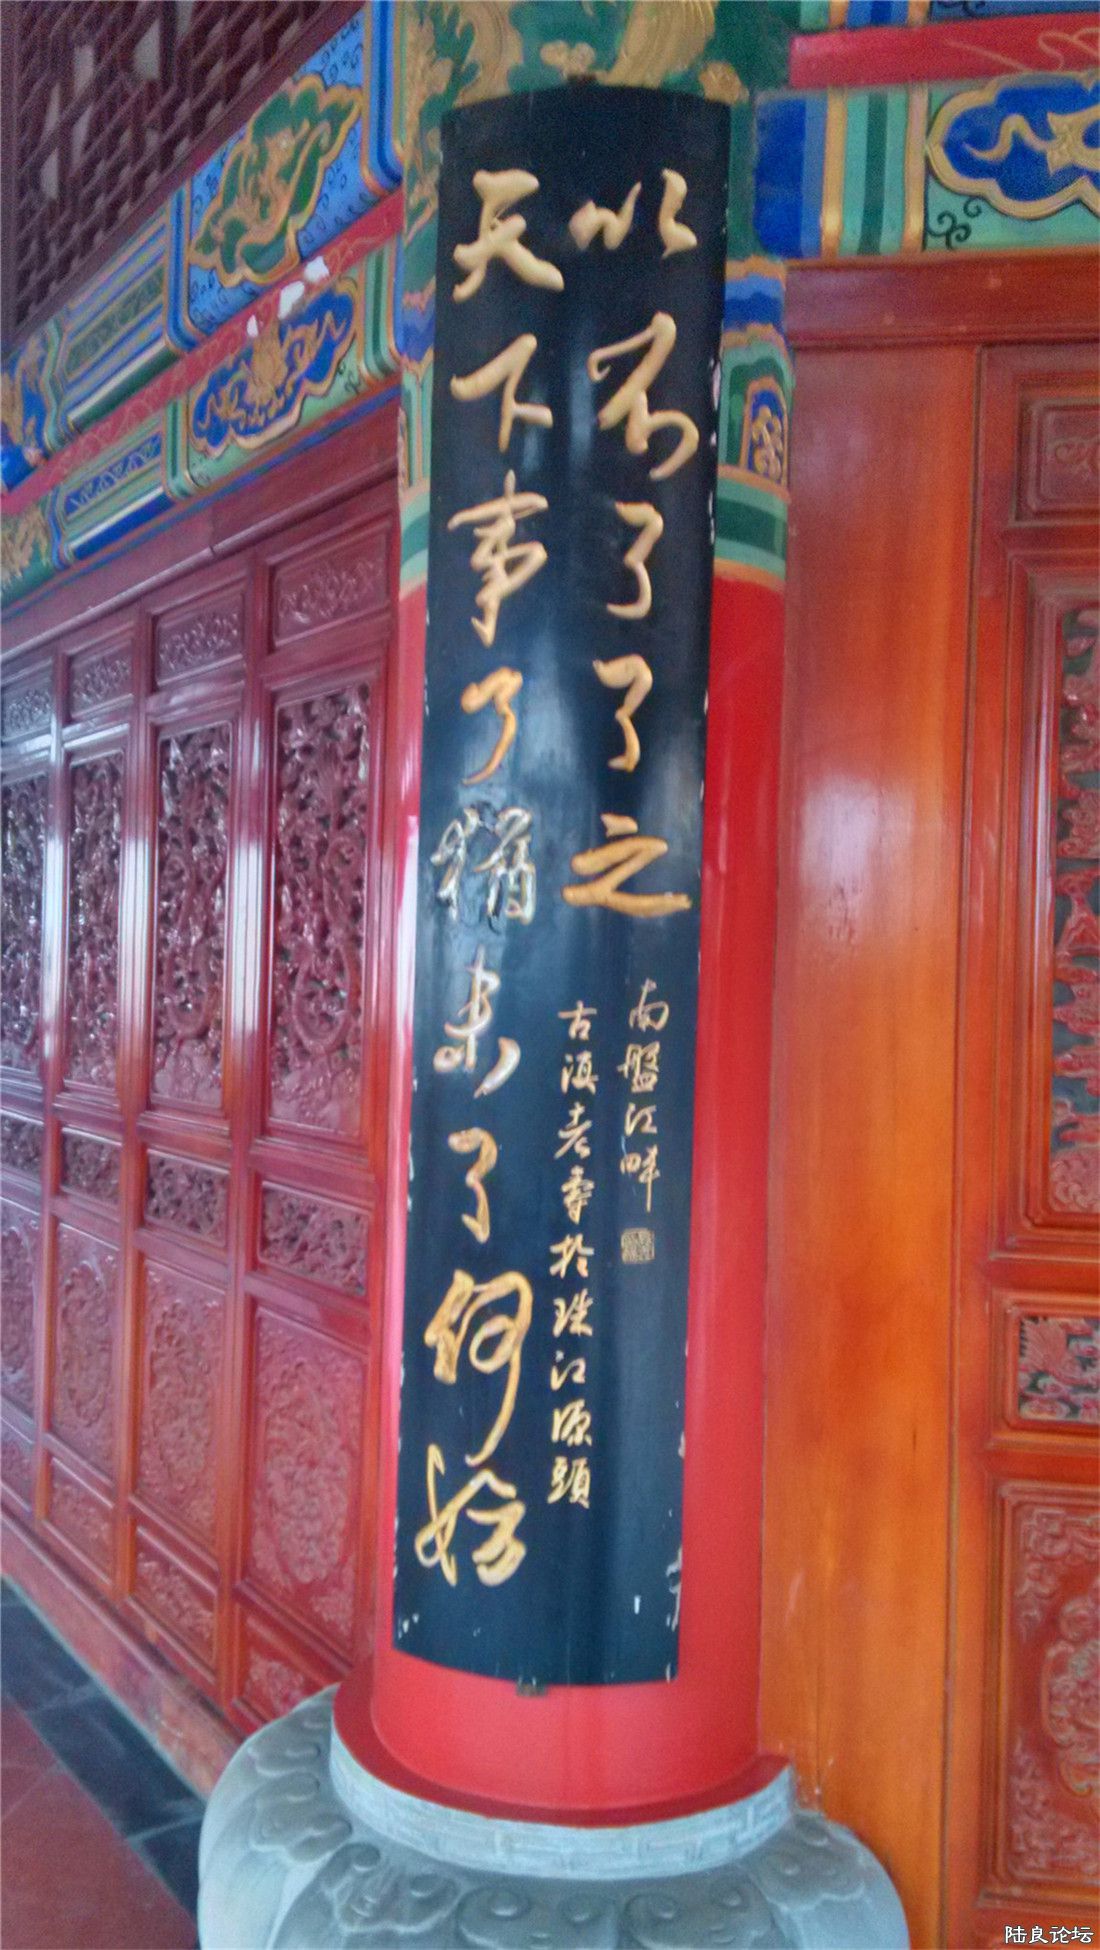 天下事了猶未了何妨
以不了了之
古滇老寿於珠江源頭
南盤江畔
陆良论坛